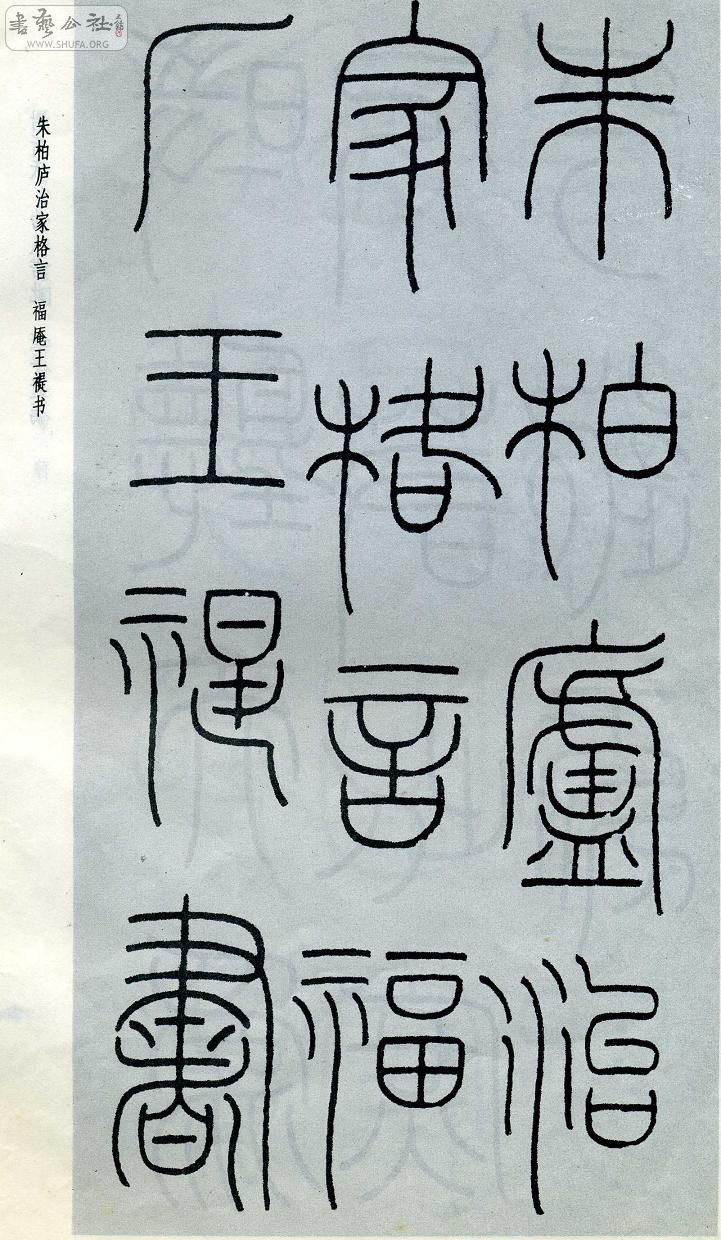 書藝公社
WWW.SHUFA.ORG
朱柏廬治
家格言福
厂王禔書
朱柏庐治家格言 福庵王禔书